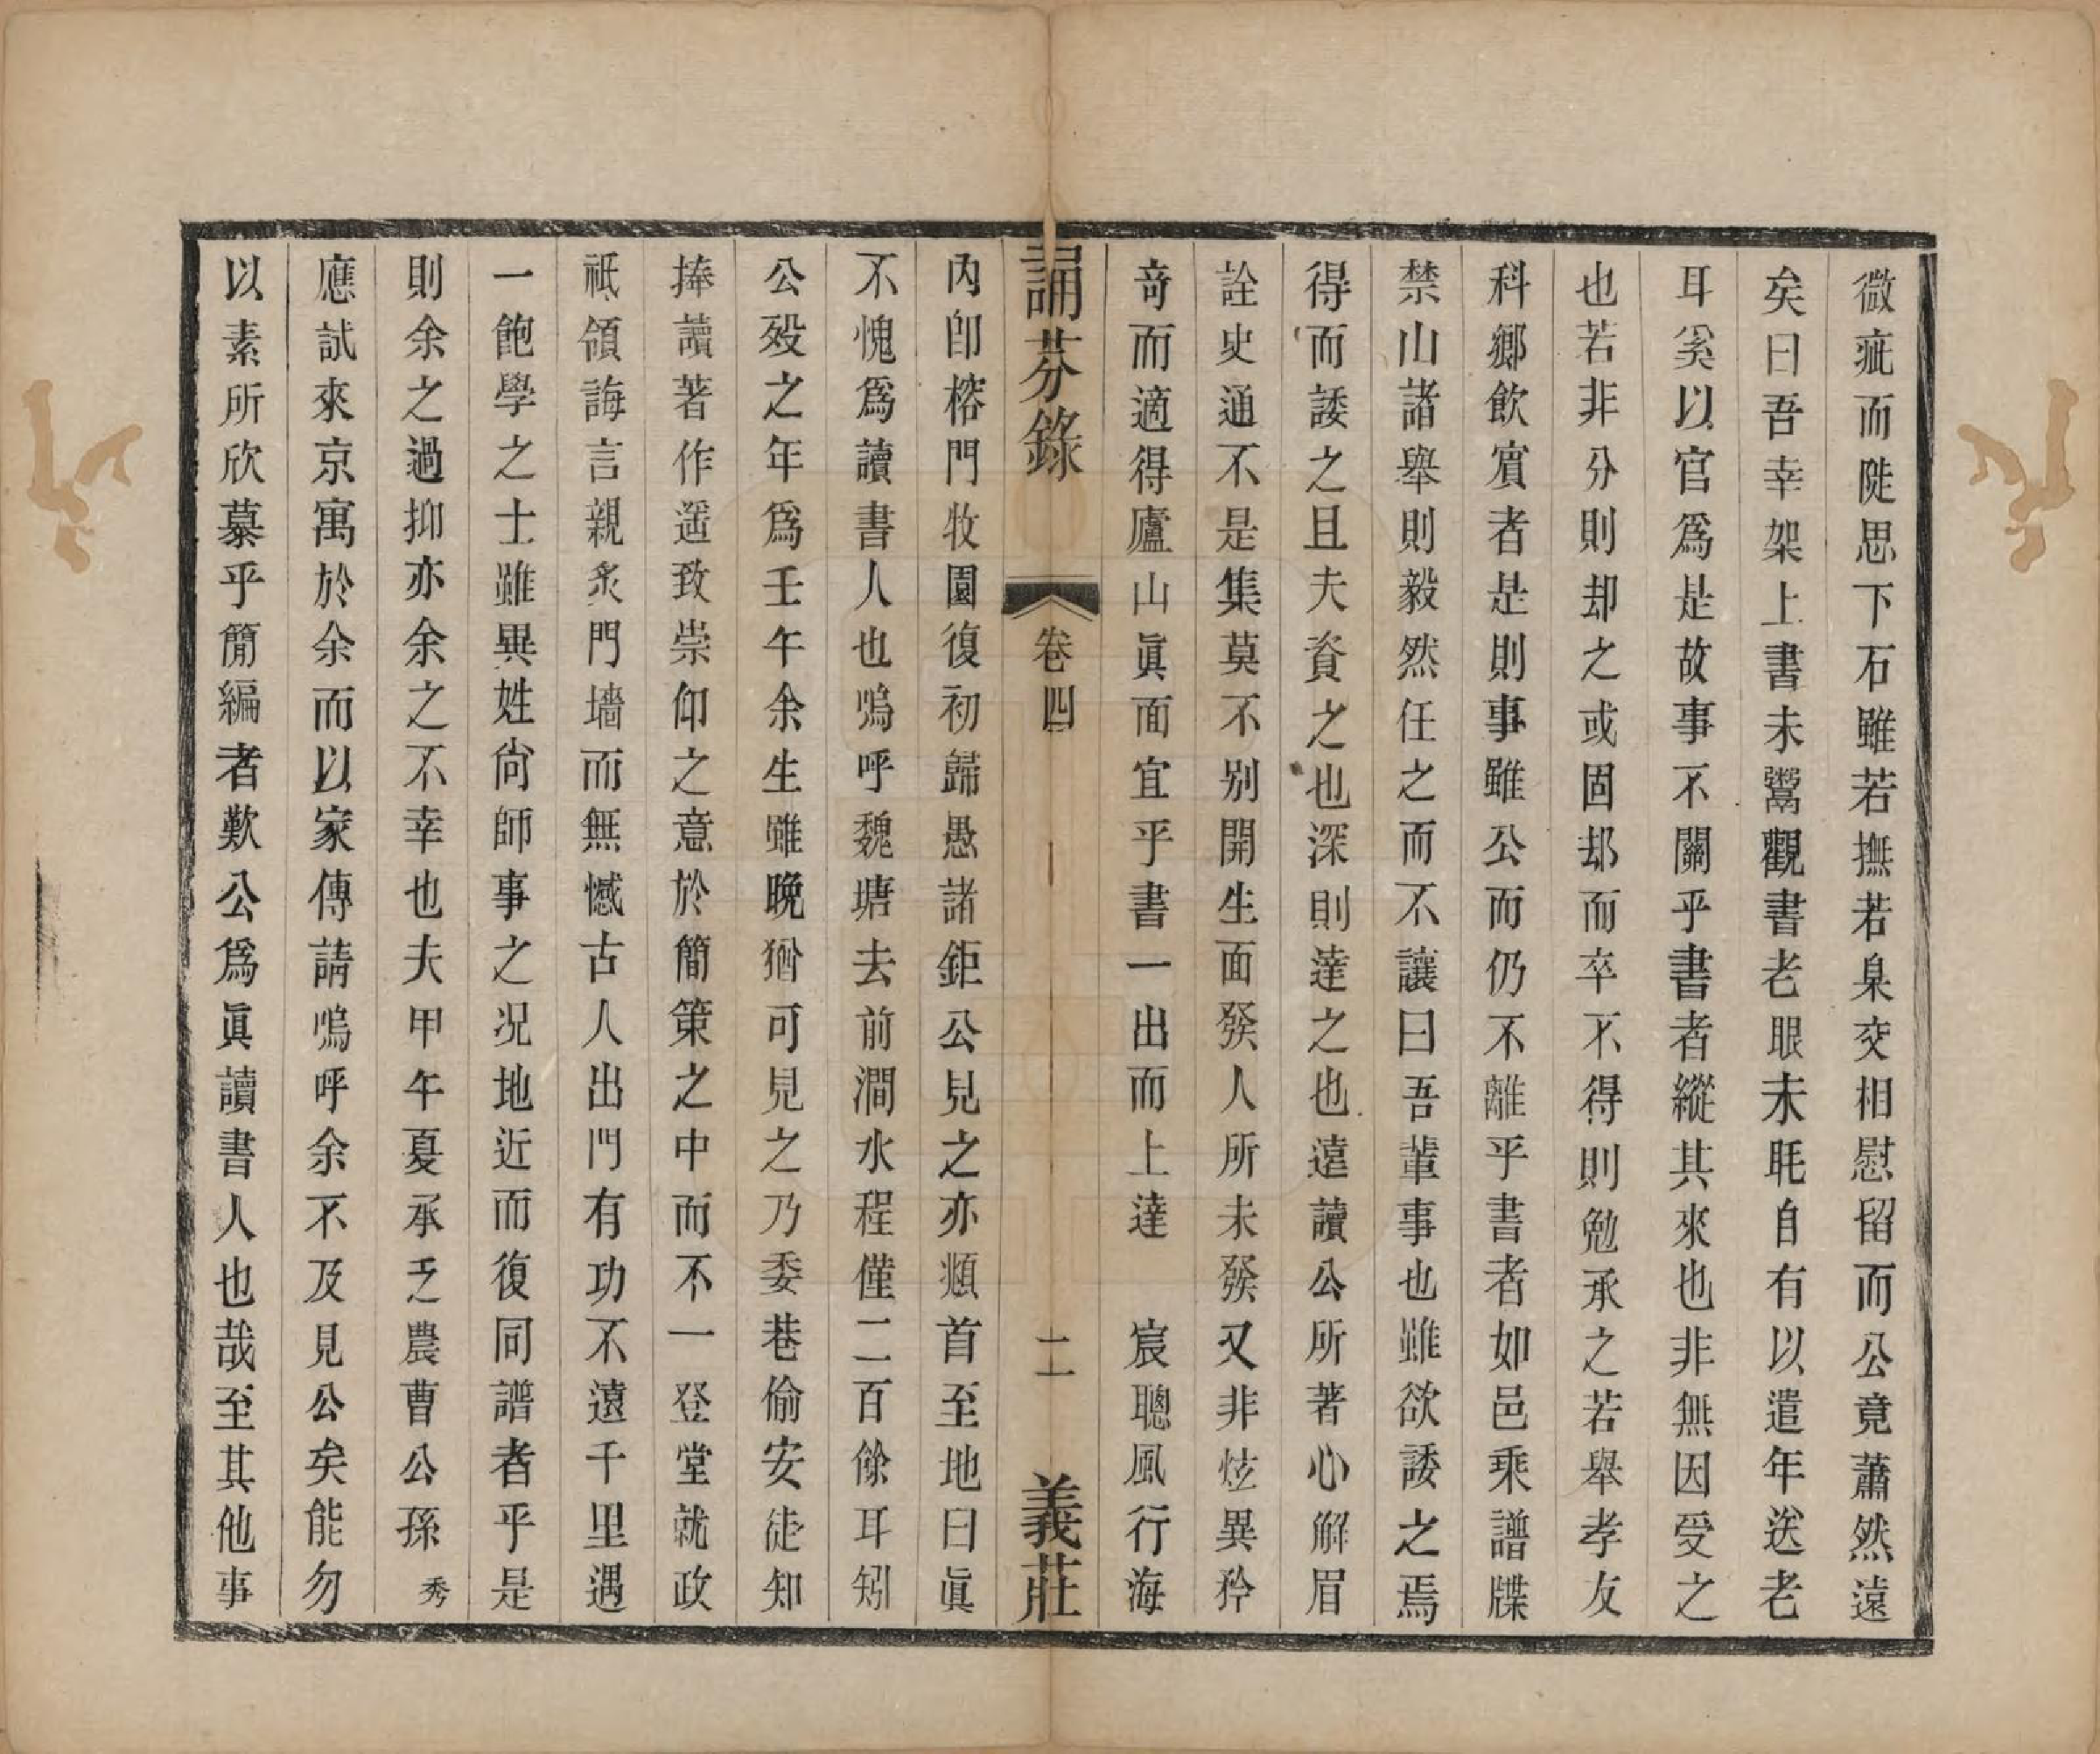 微疵而陡思下石雖若撫若臬交相慰留而公竟蕭然遠
矣曰吾幸架上書未鬻觀書老眼未眊自有以遣年送老
耳奚以官爲是故事不關乎書者縱其來也非無因受之
也若非分則却之或固却而卒不得則勉承之若舉孝友
科鄉飲賓者是則事雖公而仍不離乎書者如邑乘譜牒
禁山諸舉則毅然任之而不讓曰吾輩事也雖欲諉之焉
得而諉之且夫資之也深則達之也遠讀公所著心解眉
詮史通不是集莫不别開生面發人所未發又非炫異矜
奇而適得廬山眞面宜乎書一出而上達　宸聰風行海
誦芬錄　卷四　二　義莊
內卽榕門牧園復初歸愚諸鉅公見之亦頫首至地曰眞
不愧爲讀書人也嗚呼魏塘去前澗水程僅二百餘耳矧
公歿之年爲壬午余生雖晚猶可見之乃委巷偷安徒知
捧讀著作遥致崇仰之意於簡策之中而不一登堂就政
祇領誨言親炙門墻而無憾古人出門有功不遠千里遇
一飽學之士雖異姓尙師事之况地近而復同譜者乎是
則余之過抑亦余之不幸也夫甲午夏承乏農曹公孫秀
應試來京寓於余而以家傳請嗚呼余不及見公矣能勿
以素所欣慕乎簡編者歎公爲眞讀書人也哉至其他事